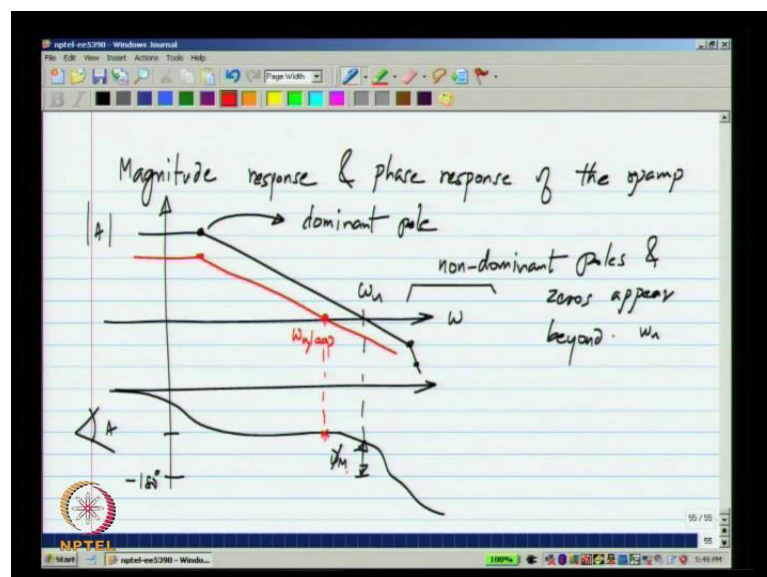 nptel-ee5390 - Windows Journal
File Edit View Insert Actions Tools Help
Page Width
B I
Magnitude response & phase response of the opamp
|A|
dominant pole
non-dominant poles &
zeros appear
beyond. ωu
ωu
ω
ωu,loop
∠A
φM
-180°
NPTEL
55 / 55
55
Start
nptel-ee5390 - Windo...
100%
5:46 PM